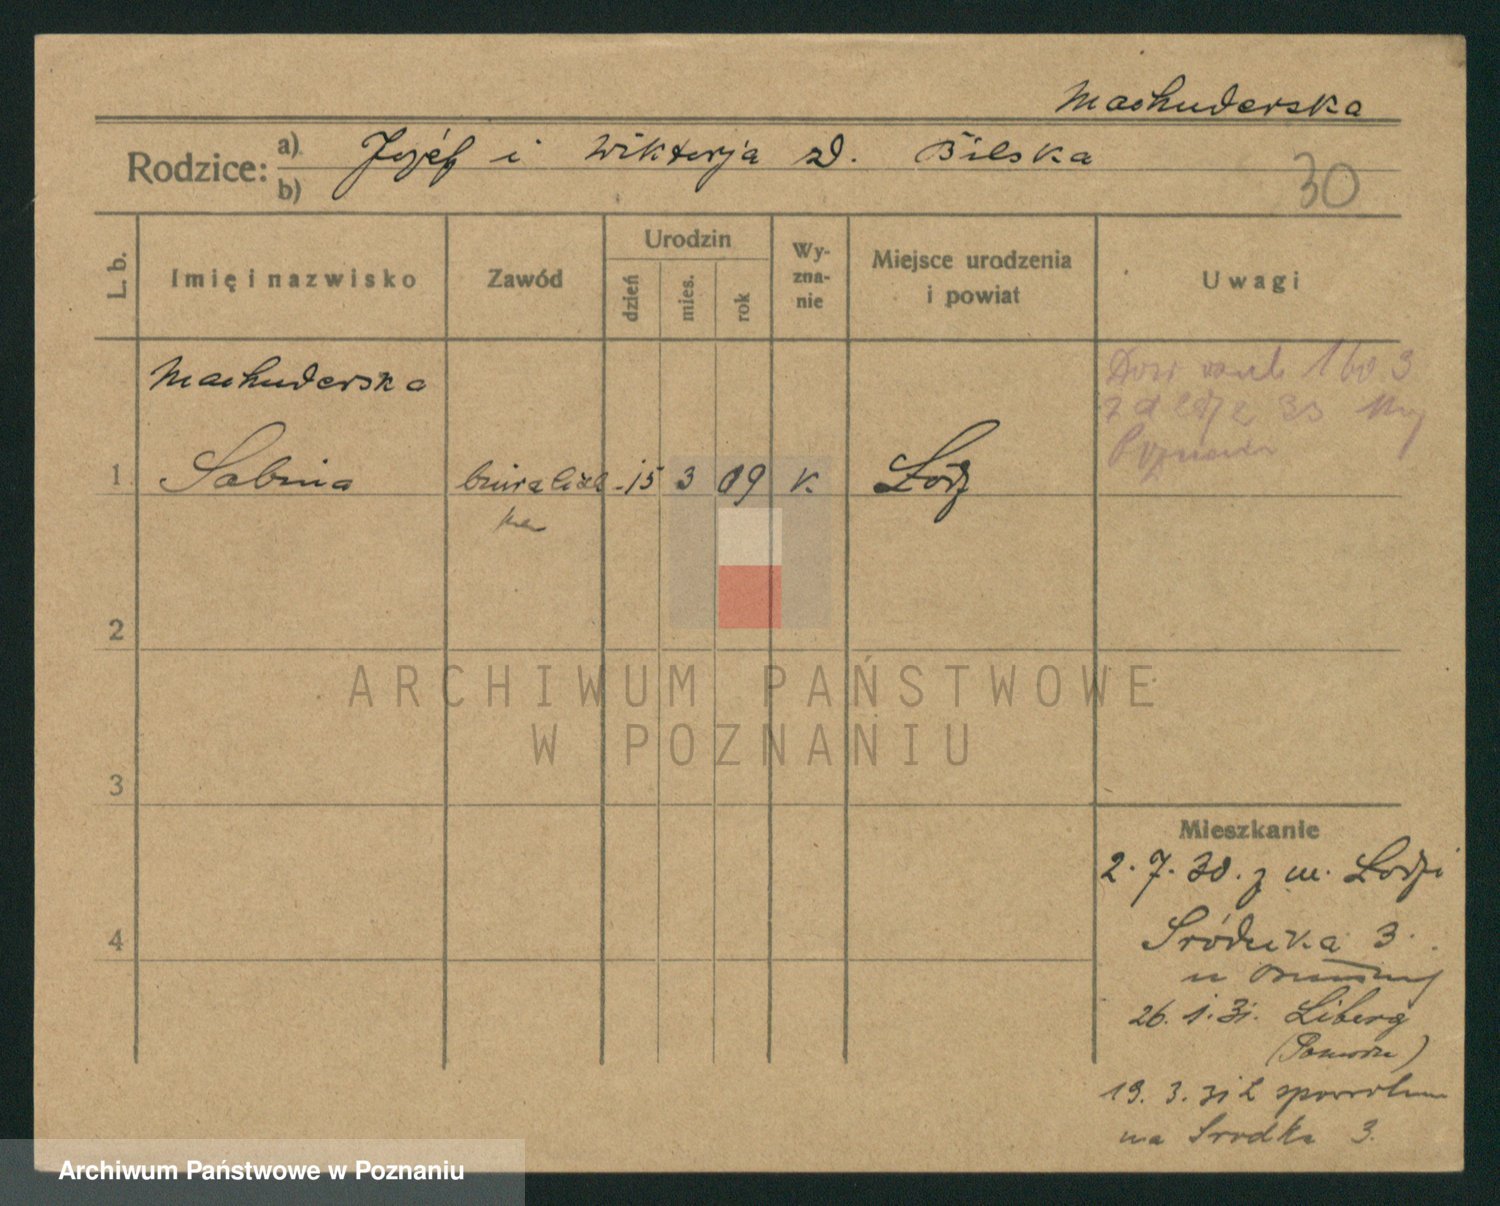 Machuderska
Rodzice: a) Józef i Wiktorja zd. Bilska
b)
30
L. b.
Imię i nazwisko
Zawód
Urodzin
dzień
mies.
rok
Wy-
zna-
nie
Miejsce urodzenia
i powiat
Uwagi
Machuderska
1 Sabina 15 3 09 k. Łódź
2
3
4
Mieszkanie
2.7.30. z m. Łodzi
Śródka 3.
26.1.31. Liberg
19.3.31 z
na Srodka 3.
ARCHIWUM PAŃSTWOWE
W POZNANIU
Archiwum Państwowe w Poznaniu